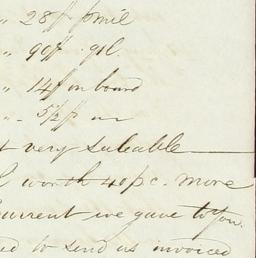 " 28 f p mil
" 90 ff . gl.
" 14 f on board
" 5½ f
very saleable
worth 40 p c. more
Current we gave to you.
to send us invoiced